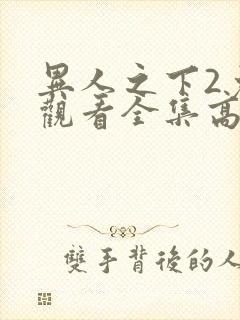 異人之下2
觀看全集高
雙手背後的人